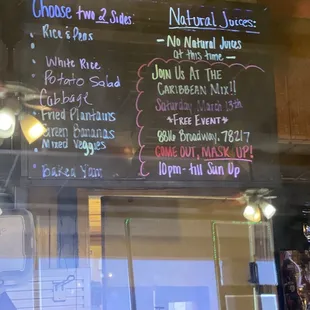 Choose two 2 Sides
Rice & Peas
White Rice
Potato Salad
Cabbage
Fried Plantains
Green Bananas
Mixed Veggies
Baked Yam
Natural Juices:
- No Natural Juices
at this time -
Join Us At The
Caribbean Mix!!
Saturday March 13th
*Free Event*
8816 Broadway, 78217
Come Out, Mask Up!
10pm - till Sun Up